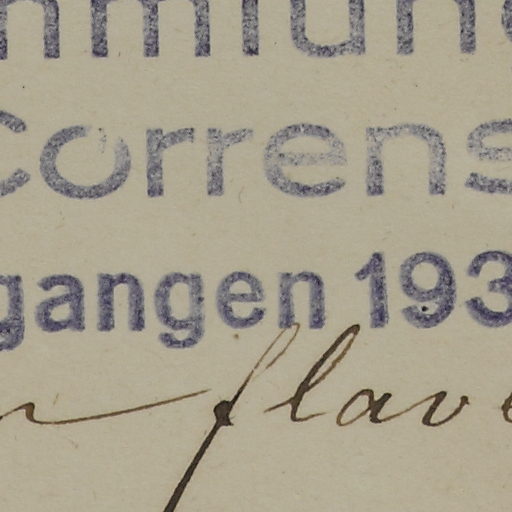 mmlung
Correns
gangen 193
flave